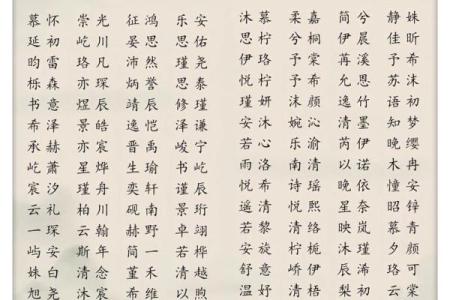 姝昕希沫初梦缨冉安锌青颜可棠
静佳予苏语知晚木憧昭慕夕珞云
兮晨溪恩竹墨伊诺依奈岚瑾希初
简伊苒允逸清芮以晚星映沐辰梨
嘉桐棠希颜沁渝清瑶熙络栀伊梧
柔兮予予沫婉乐南诗悦清桥
慕柠珞柠妍沐心洛希清黎旋意妤
沐思伊悦瑾安若雨悦若安舒温
安佑尧泰瑾谦宁屹辰珩翊烨越煦
乐思瑾思修泽峻书谨景卓若屿以
鸿思然誉辰恺禹瑜轩南野一禾维
征晏沛炳靖逸晋生奕砚赫简董希
光川凡琛辰皓宸瑾舟川翰年念宸
崇屹珞亦煜景宸亦星烨柏云斯清沐
怀初雷森意泽赫萧汐礼琛安白尧
慕延昀栎书希承屹宸云一屿姝旭